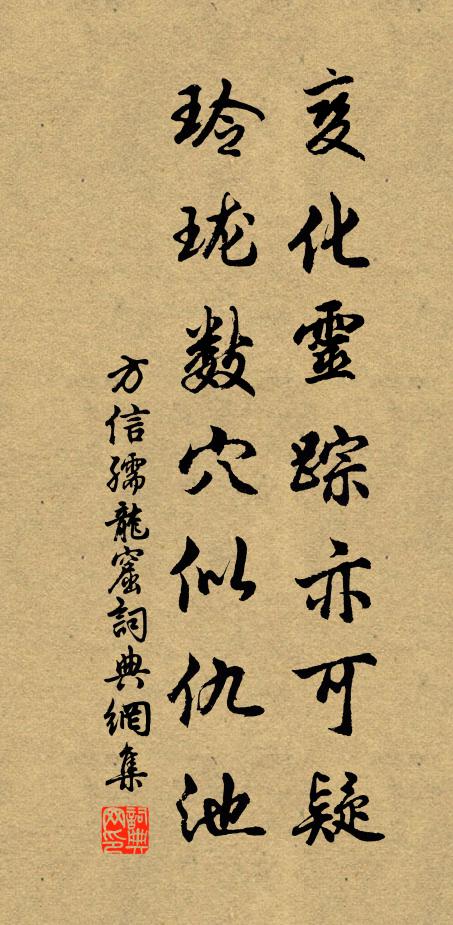 变化靈踪亦可疑
玲珑数穴似仇池
方信孺龍窟詞典網集
詞典网印